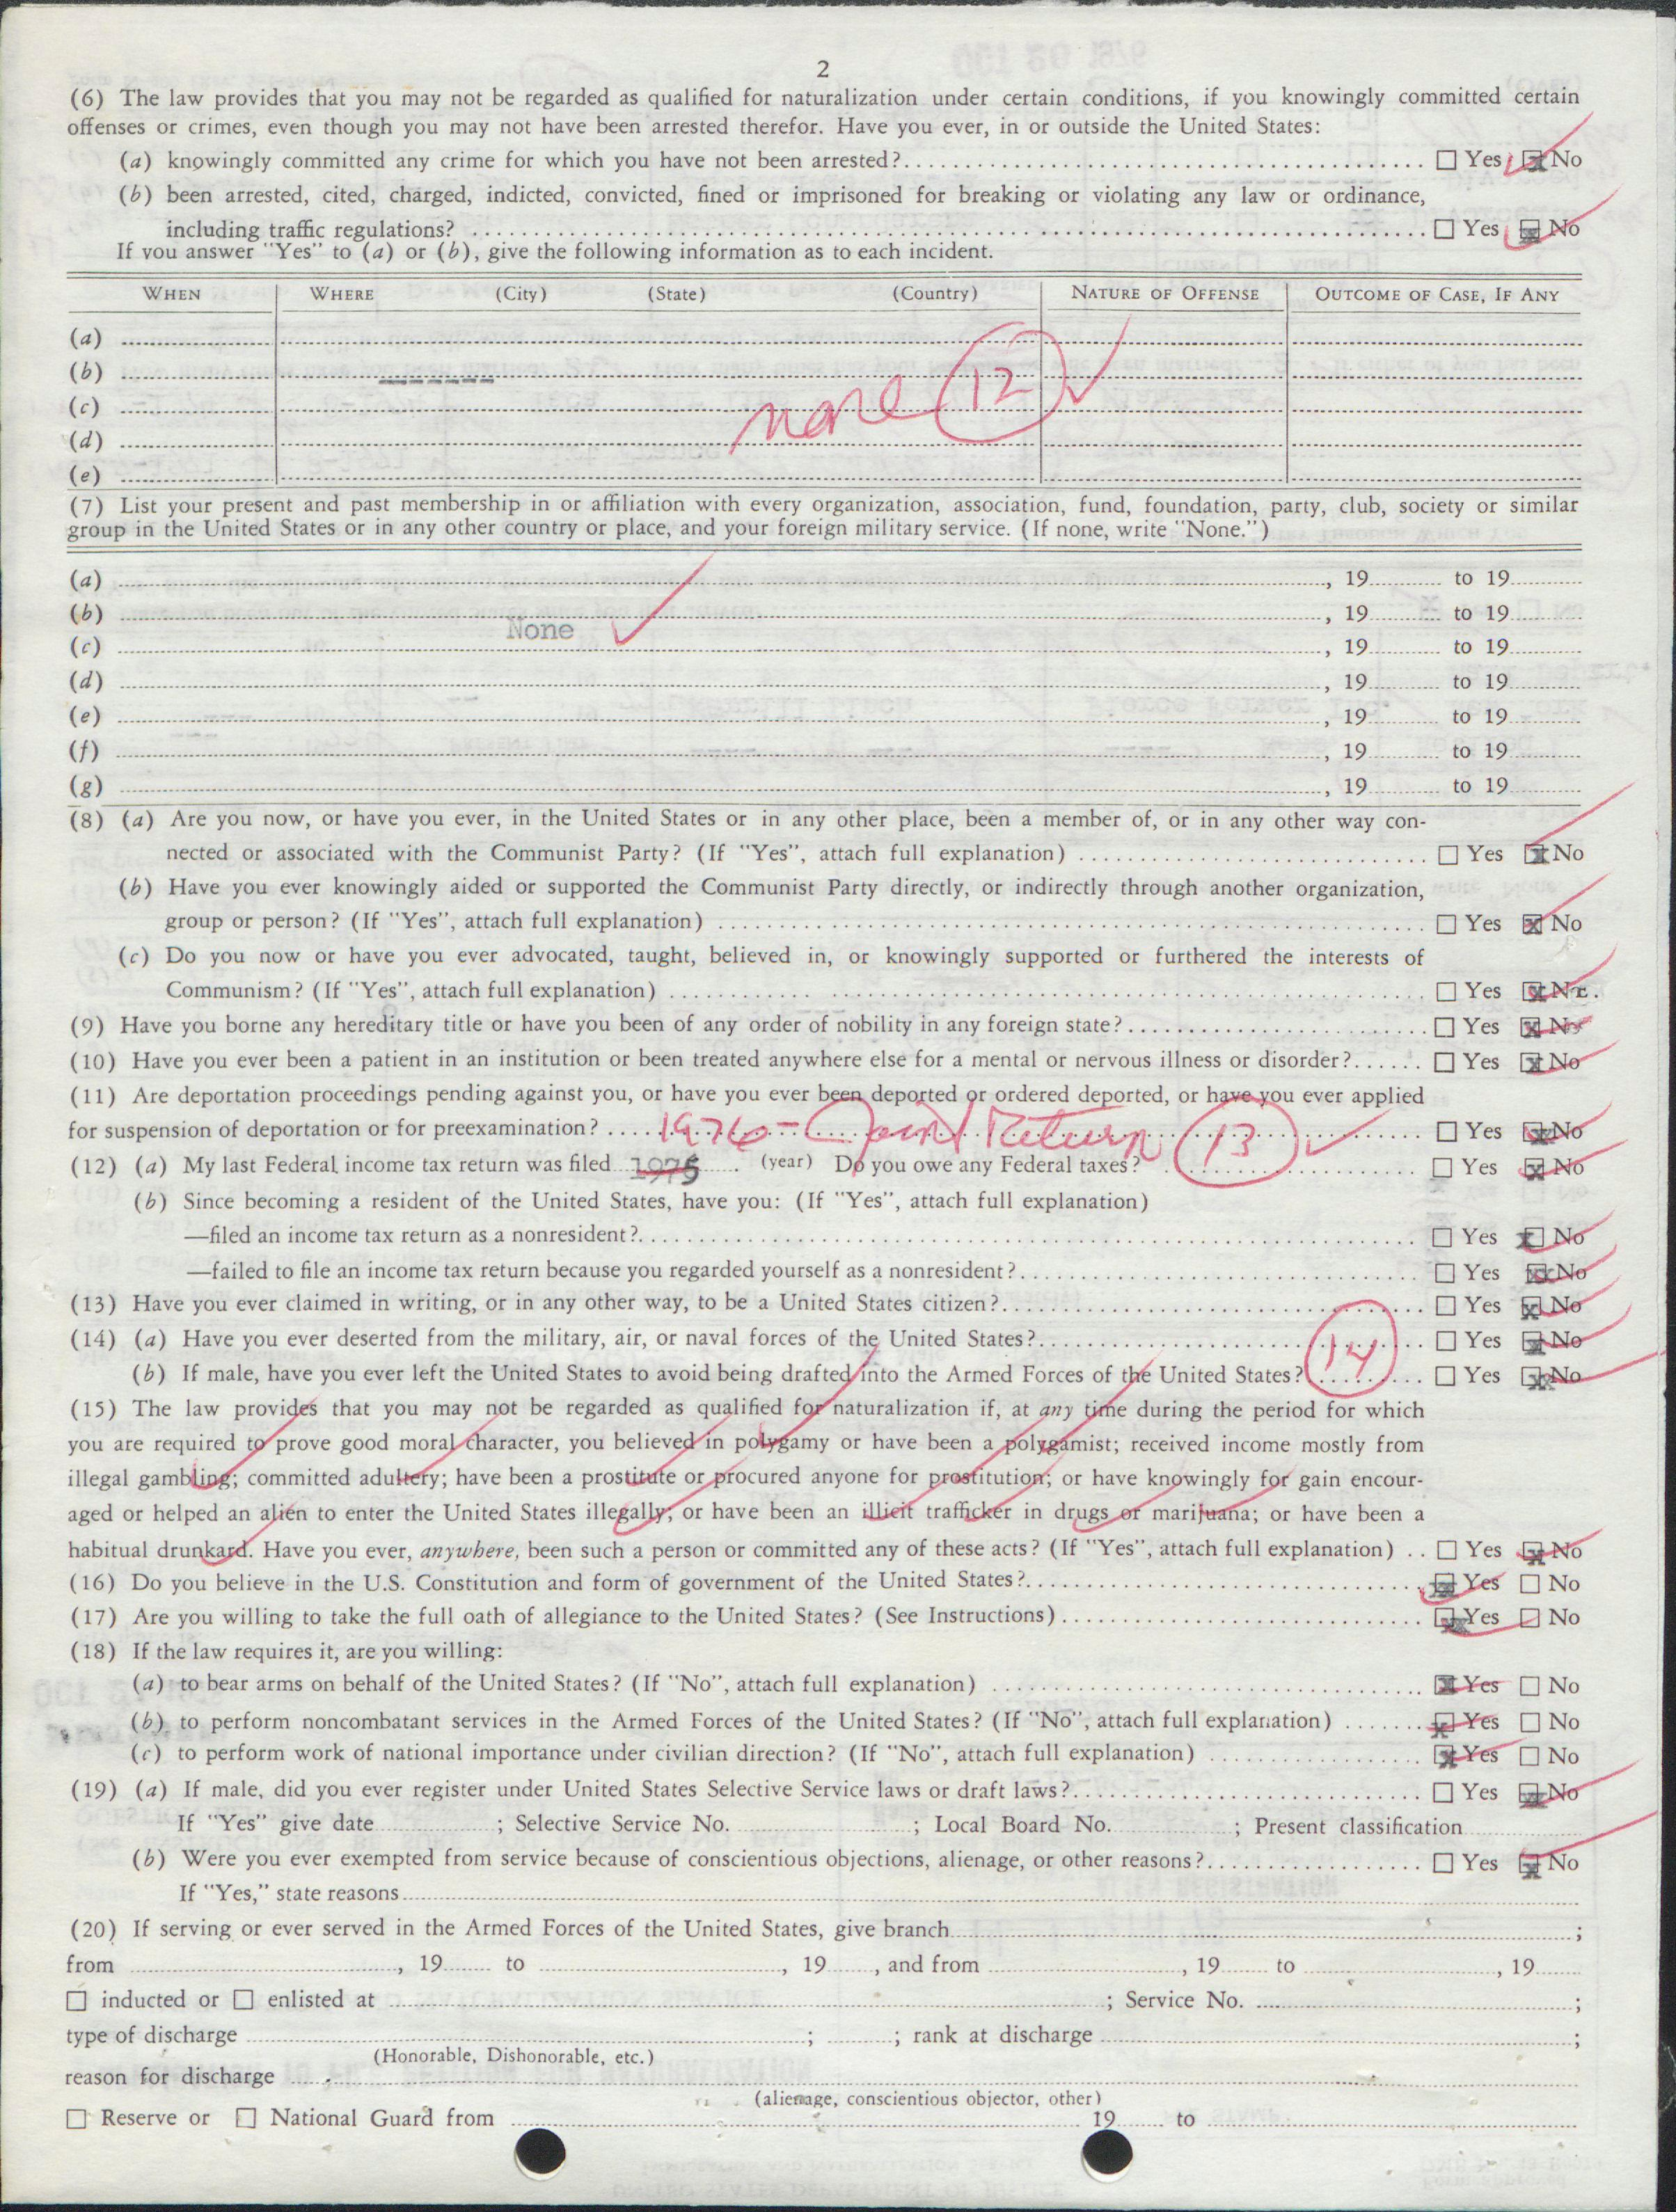 2
(6) The law provides that you may not be regarded as qualified for naturalization under certain conditions, if you knowingly committed certain
offenses or crimes, even though you may not have been arrested therefor. Have you ever, in or outside the United States:
(a) knowingly committed any crime for which you have not been arrested? ☐ Yes ☒ No
(b) been arrested, cited, charged, indicted, convicted, fined or imprisoned for breaking or violating any law or ordinance,
including traffic regulations? ☐ Yes ☒ No
If you answer "Yes" to (a) or (b), give the following information as to each incident.
WHEN WHERE (City) (State) (Country) NATURE OF OFFENSE OUTCOME OF CASE, IF ANY
(a)
(b) ------
(c) none 12
(d)
(e)
(7) List your present and past membership in or affiliation with every organization, association, fund, foundation, party, club, society or similar
group in the United States or in any other country or place, and your foreign military service. (If none, write "None.")
(a) , 19 to 19
(b) , 19 to 19
None
(c) , 19 to 19
(d) , 19 to 19
(e) , 19 to 19
(f) , 19 to 19
(g) , 19 to 19
(8) (a) Are you now, or have you ever, in the United States or in any other place, been a member of, or in any other way con-
nected or associated with the Communist Party? (If "Yes", attach full explanation) ☐ Yes ☒ No
(b) Have you ever knowingly aided or supported the Communist Party directly, or indirectly through another organization,
group or person? (If "Yes", attach full explanation) ☐ Yes ☒ No
(c) Do you now or have you ever advocated, taught, believed in, or knowingly supported or furthered the interests of
Communism? (If "Yes", attach full explanation) ☐ Yes ☒ No
(9) Have you borne any hereditary title or have you been of any order of nobility in any foreign state? ☐ Yes ☒ No
(10) Have you ever been a patient in an institution or been treated anywhere else for a mental or nervous illness or disorder? ☐ Yes ☒ No
(11) Are deportation proceedings pending against you, or have you ever been deported or ordered deported, or have you ever applied
for suspension of deportation or for preexamination? ☐ Yes ☒ No
1976 - Joint Return 13
(12) (a) My last Federal income tax return was filed 1975 (year) Do you owe any Federal taxes? ☐ Yes ☒ No
(b) Since becoming a resident of the United States, have you: (If "Yes", attach full explanation)
—filed an income tax return as a nonresident? ☐ Yes ☒ No
—failed to file an income tax return because you regarded yourself as a nonresident? ☐ Yes ☒ No
(13) Have you ever claimed in writing, or in any other way, to be a United States citizen? ☐ Yes ☒ No
(14) (a) Have you ever deserted from the military, air, or naval forces of the United States? ☐ Yes ☒ No
(b) If male, have you ever left the United States to avoid being drafted into the Armed Forces of the United States? 14 ☐ Yes ☒ No
(15) The law provides that you may not be regarded as qualified for naturalization if, at any time during the period for which
you are required to prove good moral character, you believed in polygamy or have been a polygamist; received income mostly from
illegal gambling; committed adultery; have been a prostitute or procured anyone for prostitution; or have knowingly for gain encour-
aged or helped an alien to enter the United States illegally; or have been an illicit trafficker in drugs or marijuana; or have been a
habitual drunkard. Have you ever, anywhere, been such a person or committed any of these acts? (If "Yes", attach full explanation) ☐ Yes ☒ No
(16) Do you believe in the U.S. Constitution and form of government of the United States? ☒ Yes ☐ No
(17) Are you willing to take the full oath of allegiance to the United States? (See Instructions) ☒ Yes ☐ No
(18) If the law requires it, are you willing:
(a) to bear arms on behalf of the United States? (If "No", attach full explanation) ☒ Yes ☐ No
(b) to perform noncombatant services in the Armed Forces of the United States? (If "No", attach full explanation) ☒ Yes ☐ No
(c) to perform work of national importance under civilian direction? (If "No", attach full explanation) ☒ Yes ☐ No
(19) (a) If male, did you ever register under United States Selective Service laws or draft laws? ☐ Yes ☒ No
If "Yes" give date ; Selective Service No. ; Local Board No. ; Present classification
(b) Were you ever exempted from service because of conscientious objections, alienage, or other reasons? ☐ Yes ☒ No
If "Yes," state reasons
(20) If serving or ever served in the Armed Forces of the United States, give branch ;
from , 19 to , 19 , and from , 19 to , 19
☐ inducted or ☐ enlisted at ; Service No. ;
type of discharge ; ; rank at discharge ;
(Honorable, Dishonorable, etc.)
reason for discharge
(alienage, conscientious objector, other)
☐ Reserve or ☐ National Guard from 19 to